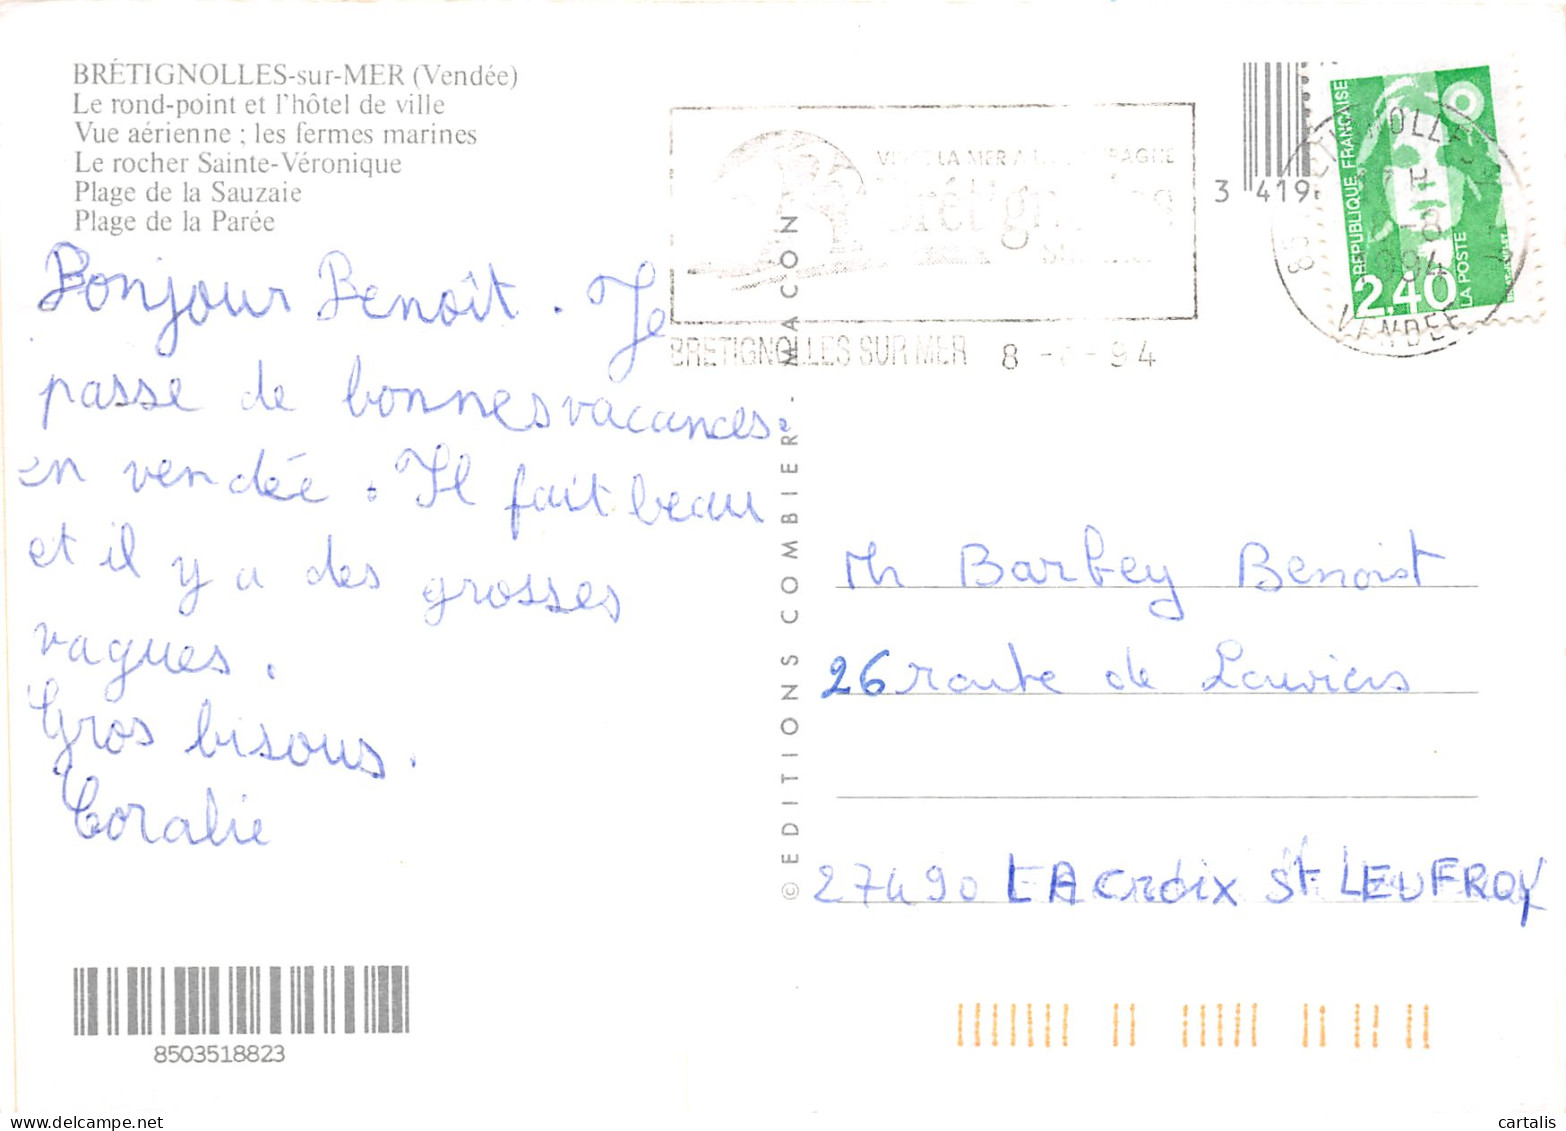 BRÉTIGNOLLES-sur-MER (Vendée)
Le rond-point et l'hôtel de ville
Vue aérienne ; les fermes marines
Le rocher Sainte-Véronique
Plage de la Sauzaie
Plage de la Parée
Bonjour Benoît. Je
passe de bonnes vacances
en vendée. Il fait beau
et il y a des grosses
vagues.
Gros bisous.
Coralie
8503518823
LA MER A
BRETIGNOLLES SUR MER 8 - - 94
© EDITIONS COMBIER - MACON
3 419
REPUBLIQUE FRANÇAISE
2,40
LA POSTE
VENDEE
Mr Barbey Benoist
26 route de Louviers
27490 LA Croix St LEUFROY
cartalis